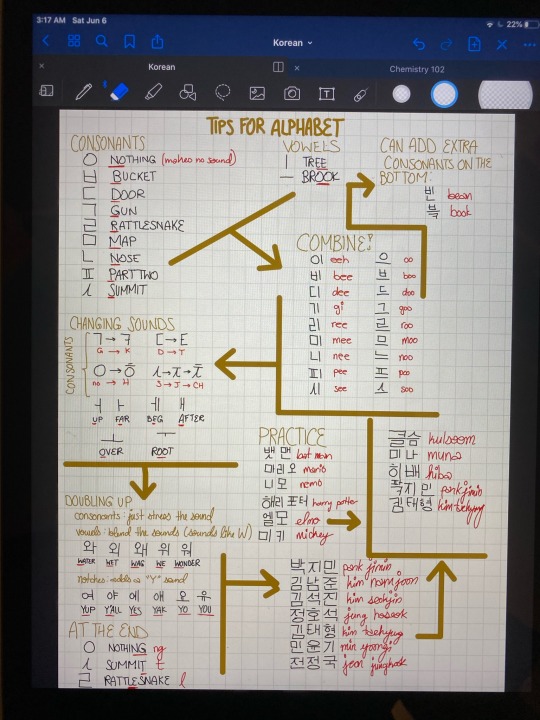 3:17 AM Sat Jun 6
22%
Korean
Korean
Chemistry 102
TIPS FOR ALPHABET
CONSONANTS
ㅇ NOTHING (makes no sound)
ㅂ BUCKET
ㄷ DOOR
ㄱ GUN
ㄹ RATTLESNAKE
ㅁ MAP
ㄴ NOSE
ㅍ PART TWO
ㅅ SUMMIT
VOWELS
ㅣ TREE
ㅡ BROOK
CAN ADD EXTRA
CONSONANTS ON THE
BOTTOM:
빈 bean
븤 book
COMBINE!
이 eeh 으 oo
비 bee 브 boo
디 dee 드 doo
기 gi 그 goo
리 ree 르 roo
미 mee 므 moo
니 nee 느 noo
피 pee 프 poo
시 see 스 soo
CHANGING SOUNDS
CONSONANTS
ㄱ→ㅋ ㄷ→ㅌ
G → K D → T
ㅇ→ㅎ ㅅ→ㅈ→ㅊ
no → H S → J → CH
ㅓ ㅏ ㅔ ㅐ
UP FAR BEG AFTER
ㅗ ㅜ
OVER ROOT
DOUBLING UP
consonants: just stress the sound
vowels: blend the sounds (sounds like W)
와 외 왜 위 워
WATER WET WAG WE WONDER
notches: adds a "Y" sound
여 야 예 얘 요 유
YUP Y'ALL YES YAK YO YOU
AT THE END
ㅇ NOTHING ng
ㅅ SUMMIT t
ㄹ RATTLESNAKE l
PRACTICE
뱃맨 bat man
마리오 mario
니모 nemo
해리포터 harry potter
엘모 elmo
미키 mickey
muna
hiba
park jimin
김태형 kim taehyung
박지민 park jimin
김남준 kim namjoon
김석진 kim seokjin
정호석 jung hoseok
김태형 kim taehyung
민윤기 min yoongi
전정국 jeon jungkook